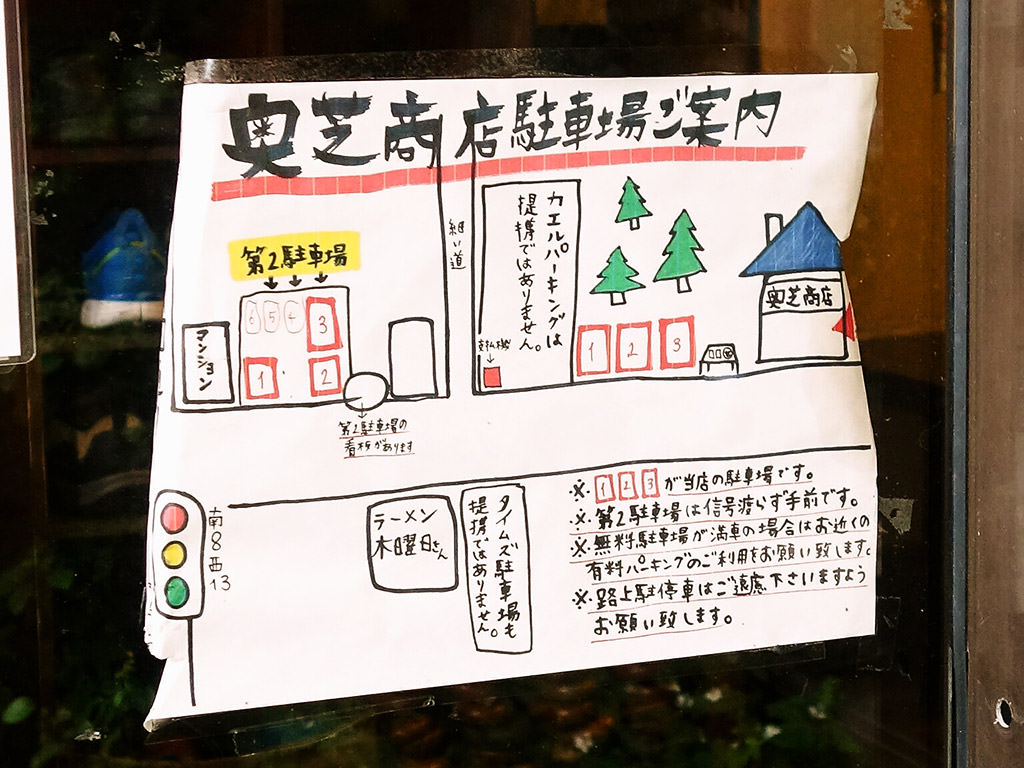 奥芝商店駐車場ご案内
細い道
カエルパーキングは
提携ではありません。
支払機
第2駐車場
6 5 4 3
1 2
マンション
1 2 3
奥芝商店
第2駐車場の
看板があります
南8西13
ラーメン
木曜日さん
タイムズ駐車場も
提携ではありません。
※ 1 2 3 が当店の駐車場です。
※ 第2駐車場は信号渡らず手前です。
※ 無料駐車場が満車の場合はお近くの
有料パーキングのご利用をお願い致します。
※ 路上駐停車はご遠慮下さいますよう
お願い致します。